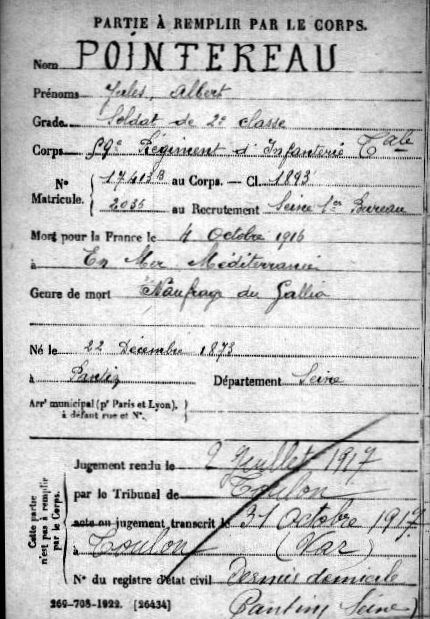 PARTIE À REMPLIR PAR LE CORPS.
Nom POINTEREAU
Prénoms Jules, Albert
Grade Soldat de 2e classe
Corps 59e Régiment d'Infanterie Tale
No Matricule. 17413B au Corps. — Cl. 1893
2035 au Recrutement Seine 1er Bureau
Mort pour la France le 4 Octobre 1916
à En Mer Méditerranée
Genre de mort Naufrage du Gallia
Né le 22 Décembre 1873
à Pantin Département Seine
Arrt municipal (pr Paris et Lyon),
à défaut rue et No.
Cette partie n'est pas à remplir par le Corps.
Jugement rendu le 2 Juillet 1917
par le Tribunal de Toulon
acte ou jugement transcrit le 31 Octobre 1917
à Toulon (Var)
No du registre d'état civil Dernier domicile
Pantin (Seine)
269-708-1922. [26434]